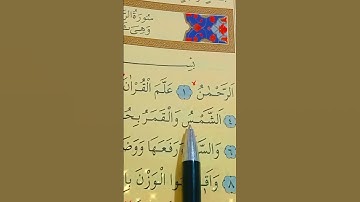 سُورَةُ
وَهِيَ
اَلرَّحْمٰنُ ١ عَلَّمَ الْقُرْاٰنَ
٤ اَلشَّمْسُ وَالْقَمَرُ بِحُ
٦ رَفَعَهَا وَوَضَ
٨ الْوَزْنَ بِا